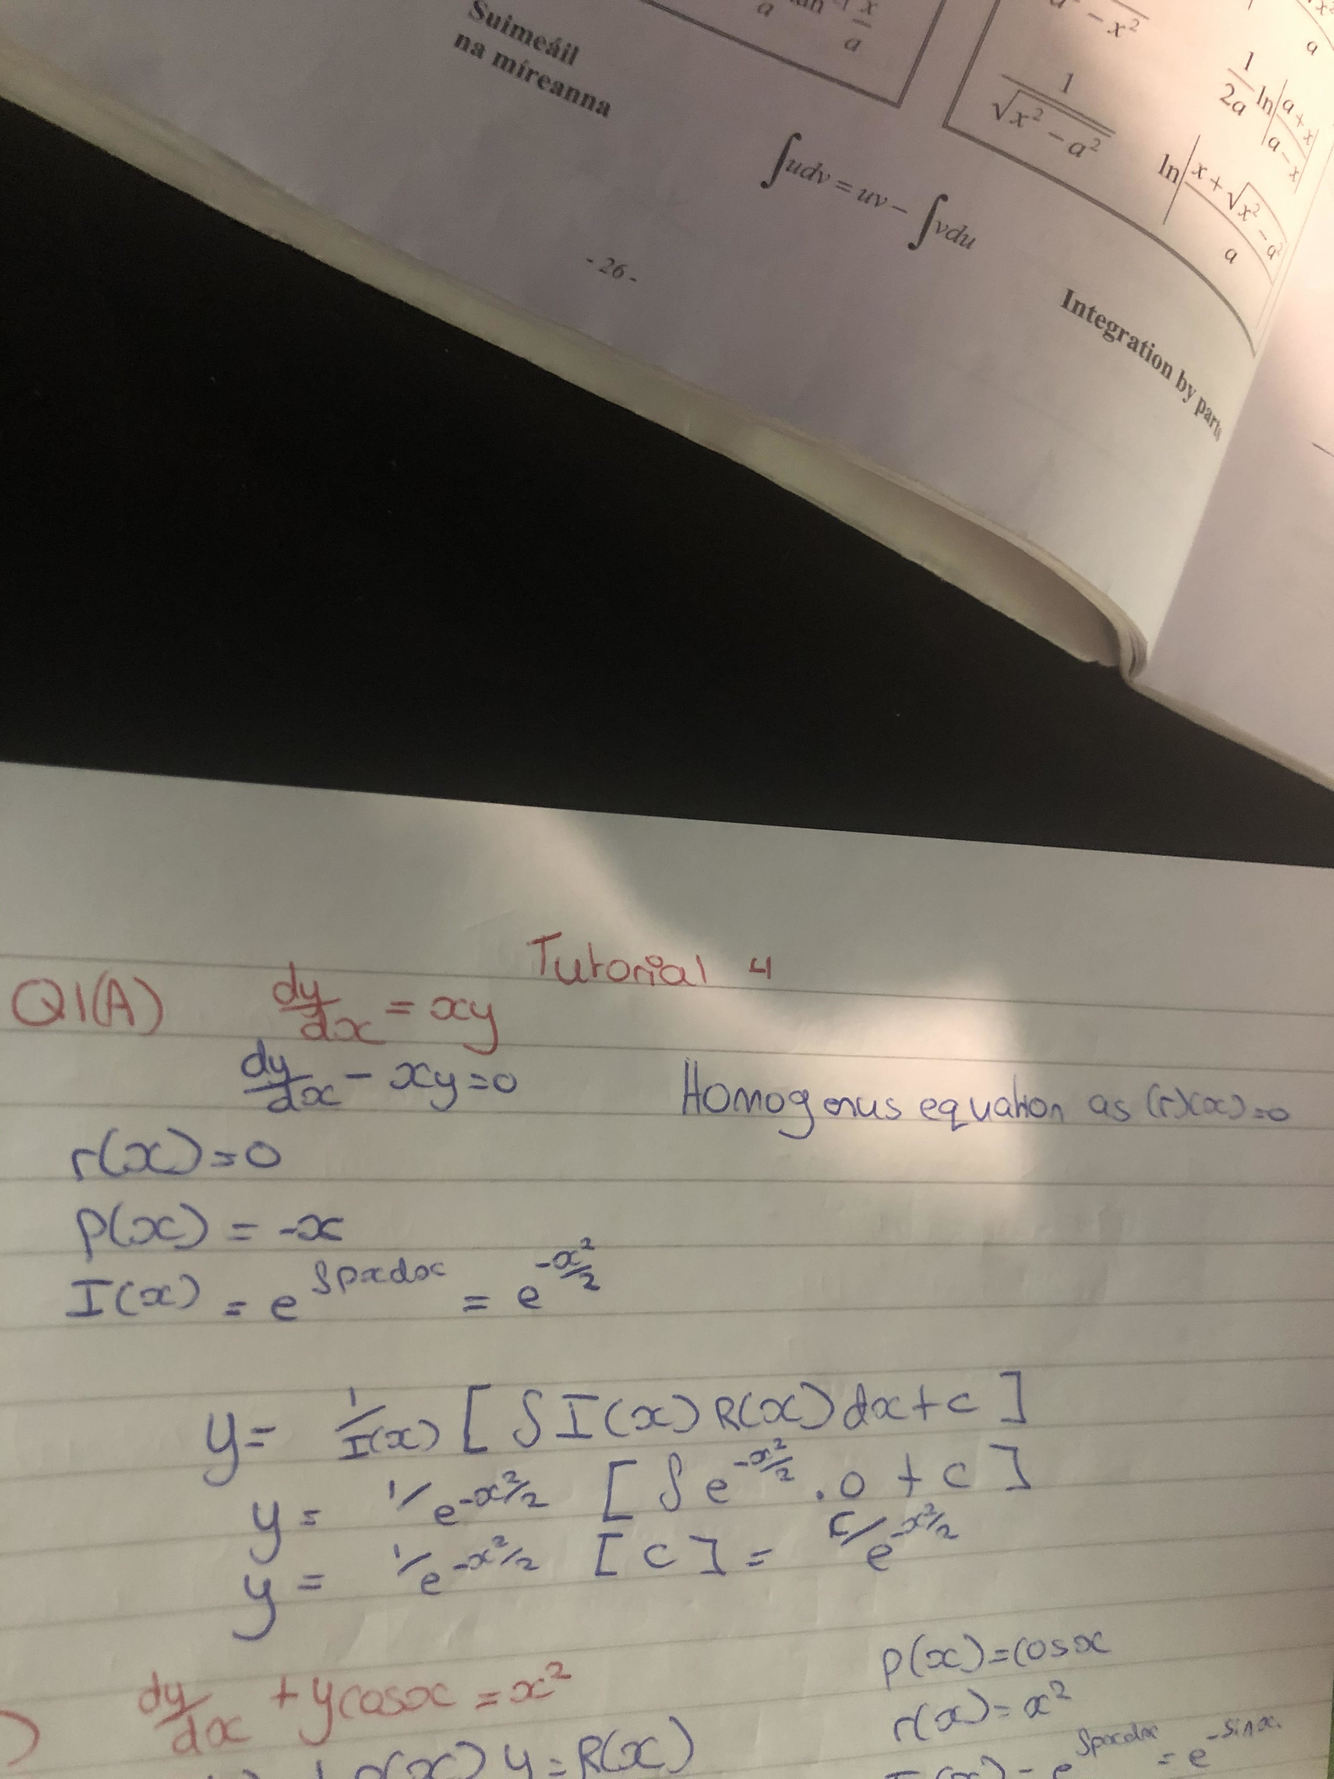 Suimeáil
na míreanna
x
a
a
- x²
1
√x² - a²
1
2a
ln
a + x
a - x
ln
x + √x² - a²
a
a
∫udv = uv - ∫vdu
Integration by parts
- 26 -
Tutorial 4
Q1(A) dy/dx = xy
dy/dx - xy = 0 Homogenus equation as (r)(x) = 0
r(x) = 0
p(x) = -x
I(x) = e^∫pxdx = e^-x²/2
y = 1/I(x) [ ∫ I(x) R(x) dx + c ]
y = 1/e^-x²/2 [ ∫ e^-x²/2 . 0 + c ]
y = 1/e^-x²/2 [ c ] = c/e^-x²/2
) dy/dx + y cosx = x²
p(x) = cosx
r(x) = x²
p(x) y = R(x)
I(x) = e^∫pxdx = e^-sinx